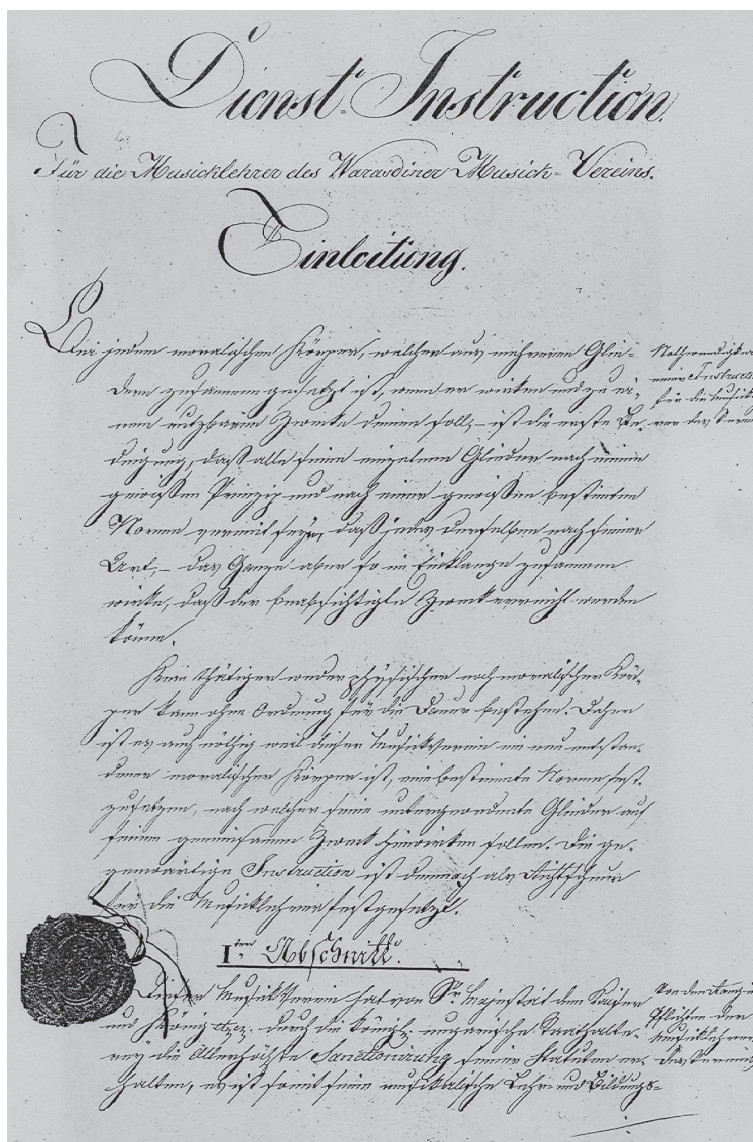 Dienst-Instruction.
Für die Musicklehrer des Warasdiner Musick-Vereins.
Einleitung.
Bei jedem moralischen Körper, welcher aus mehreren Glie-
dern zusammen gesetzt ist, wenn er wirken und zu ei-
nem nutzbaren Zwecke dienen soll, – ist die erste Be-
dingung, daß alle seine einzelnen Glieder nach einem
gewissen Prinzip und nach einer gewissen bestimten
Norm vereint seyn, daß jedes derselben nach seiner
Art, – das Ganze aber so im Einklange zusammen
wirke, daß der beabsichtigte Zweck erreicht werden
könne.
Nothwendigkeit
einer Instruction
für die Musickleh-
rer des Vereins
Kein thätiger weder physischer noch moralischer Kör-
per kann ohne Ordnung für die Dauer bestehen. Daher
ist es auch nöthig weil dieser Musickverein ein neu entstan-
dener moralischer Körper ist, eine bestimmte Norm fest-
zusetzen, nach welcher seine untergeordnete Glieder auf
seinen gemeinsamen Zweck hinwirken sollen. Die ge-
genwärtige Instruction ist demnach als Richtschnur
für die Musicklehrer festgesetzt.
Iter Abschnitt.
Dieser Musickverein hat von Sr. Majestät dem Kaiser
und König durch die königl. ungarische Statthalte-
rey die Allerhöchste Sanctionirung seiner Statuten er-
halten, es ist somit seine musikalische Lehr- und Bildungs-
Von den
Pflichten der
Musicklehrer
des Vereins